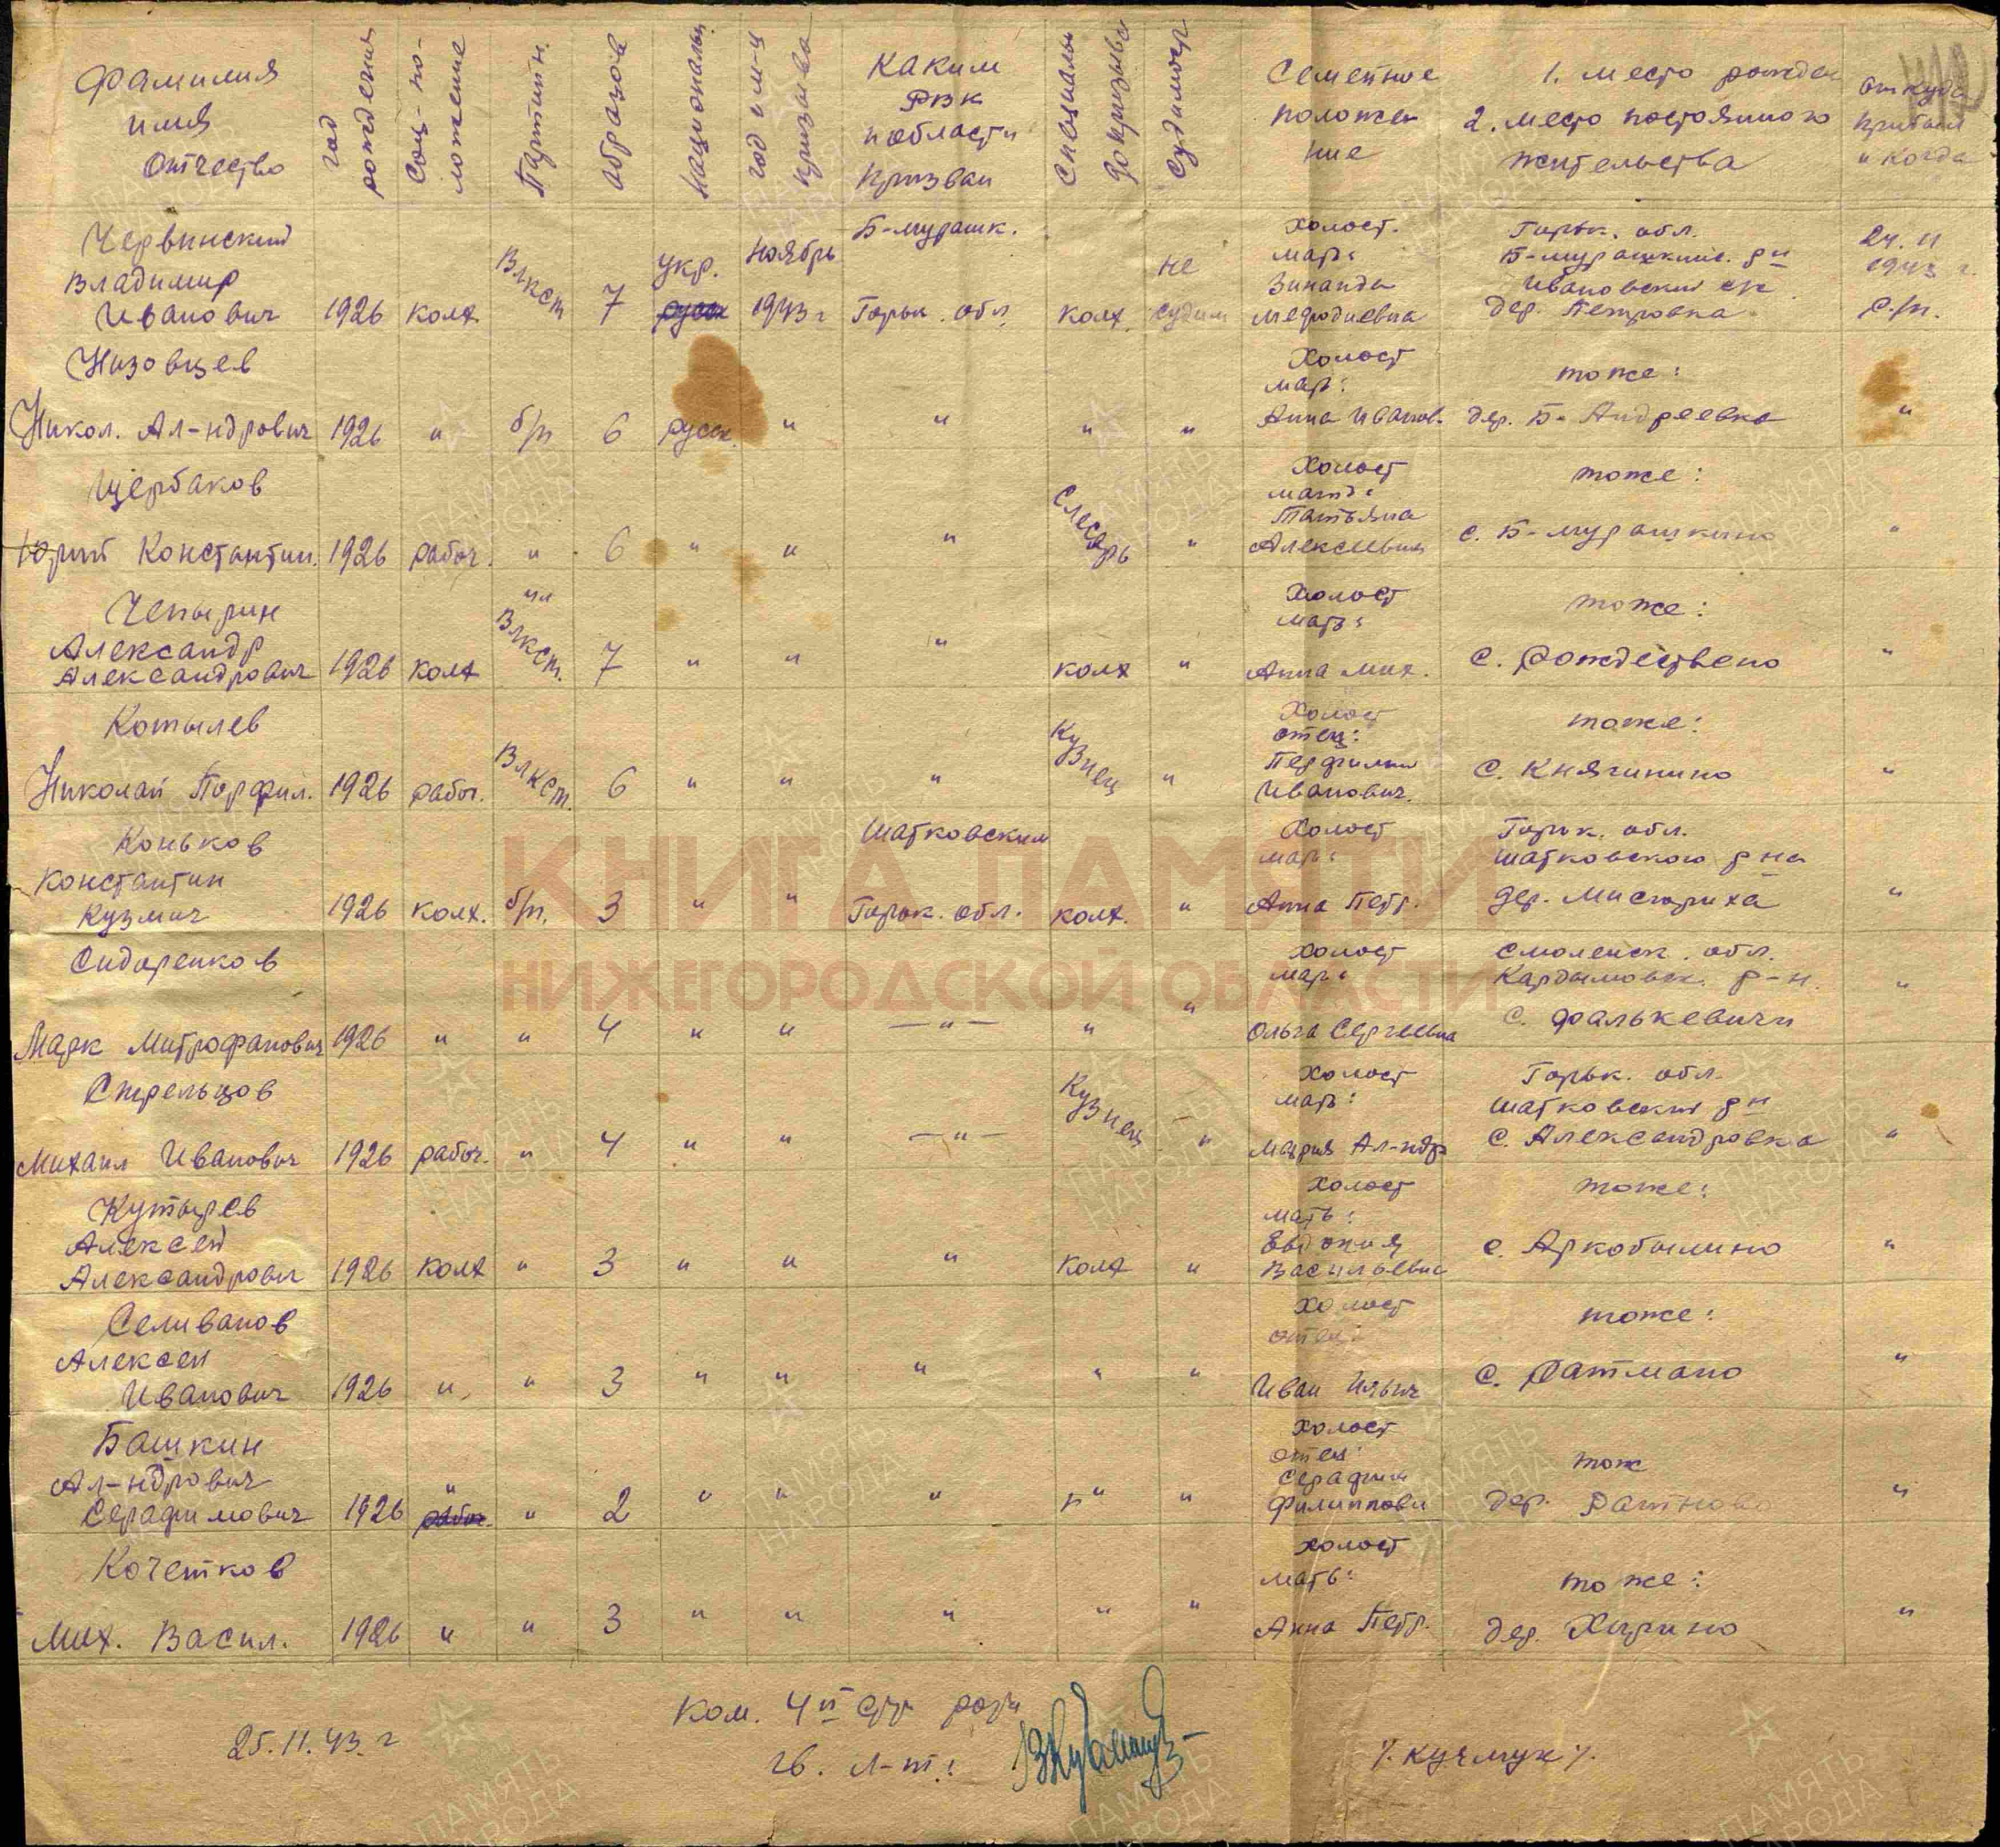 Фамилия имя отчество
год рождения
соц-положение
Партийн.
образов
национальн
год и м-ц призыва
каким РВК и области призван
специальн до призыва
судимост
Семейное положение
1. место рожден
2. место постоянного жительства
откуда прибыл и когда
Червинский
Владимир
Иванович 1926 колх. ВЛКСМ 7 укр. русск ноябрь 1943 г Б-мурашк. Горьк. обл. колх. не судим
холост. мать: Зинаида мефодиевна
Горьк. обл. Б-мурашкинс. р-н Ивановский с/с дер. Петровка
24.11 1943 г. с/п.
Низовцев
Никол. Ал-ндрович 1926 " б/п 6 русск. " " " "
Холост мать: Анна Иванов.
тоже: дер. Б-Андреевка "
Щербаков
Юрий Константин. 1926 рабоч. " 6 " " " Слесарь "
Холост мать: Татьяна Алексеевна
тоже: с. Б-мурашкино "
Чепырин
Александр
Александрович 1926 колх чл ВЛКСМ. 7 " " " колх "
Холост мать: Анна Мих.
тоже: с. Рождествено "
Котылев
Николай Порфил. 1926 рабоч. ВЛКСМ. 6 " " " Кузнец "
Холост отец: Перфилий Иванович.
тоже: с. Княгинино "
Коньков
Константин
Кузмич 1926 колх. б/п. 3 " " Шатковским Горьк. обл. колх. "
Холост мать: Анна Петр.
Горьк. обл. шатковского р-на дер. "
Сидоренков
Марк Митрофанович 1926 " " 4 " " —"— " "
холост мать: Ольга Сергеевна
Смоленск. обл. Кардымовск. р-н. с. Фалькевичи "
Стрельцов
Михаил Иванович 1926 рабоч. " 4 " " —"— Кузнец "
холост мать: Мария Ал-ндр
Горьк. обл. шатковский р-н с. Александровка "
Кутырев
Алексей
Александрович 1926 колх " 3 " " " колх "
холост мать: Евдокия Васильевна
тоже: с. Архобылино "
Селиванов
Алексей
Иванович 1926 " " 3 " " " " "
холост отец: Иван Ильич
тоже: с. Патмано "
Башкин
Ал-ндрович
Серафимович 1926 " рабоч. " 2 " " " " "
холост отец: Серафим Филиппови
тож дер. "
Кочетков
Мих. Васил. 1926 " " 3 " " " " "
холост мать: Анна Петр.
тоже: дер. Хирино "
25.11.43. г
Ком. 4й стр роты
гв. л-т:
/. кучмук /.
КНИГА ПАМЯТИ
НИЖЕГОРОДСКОЙ ОБЛАСТИ
ПАМЯТЬ НАРОДА